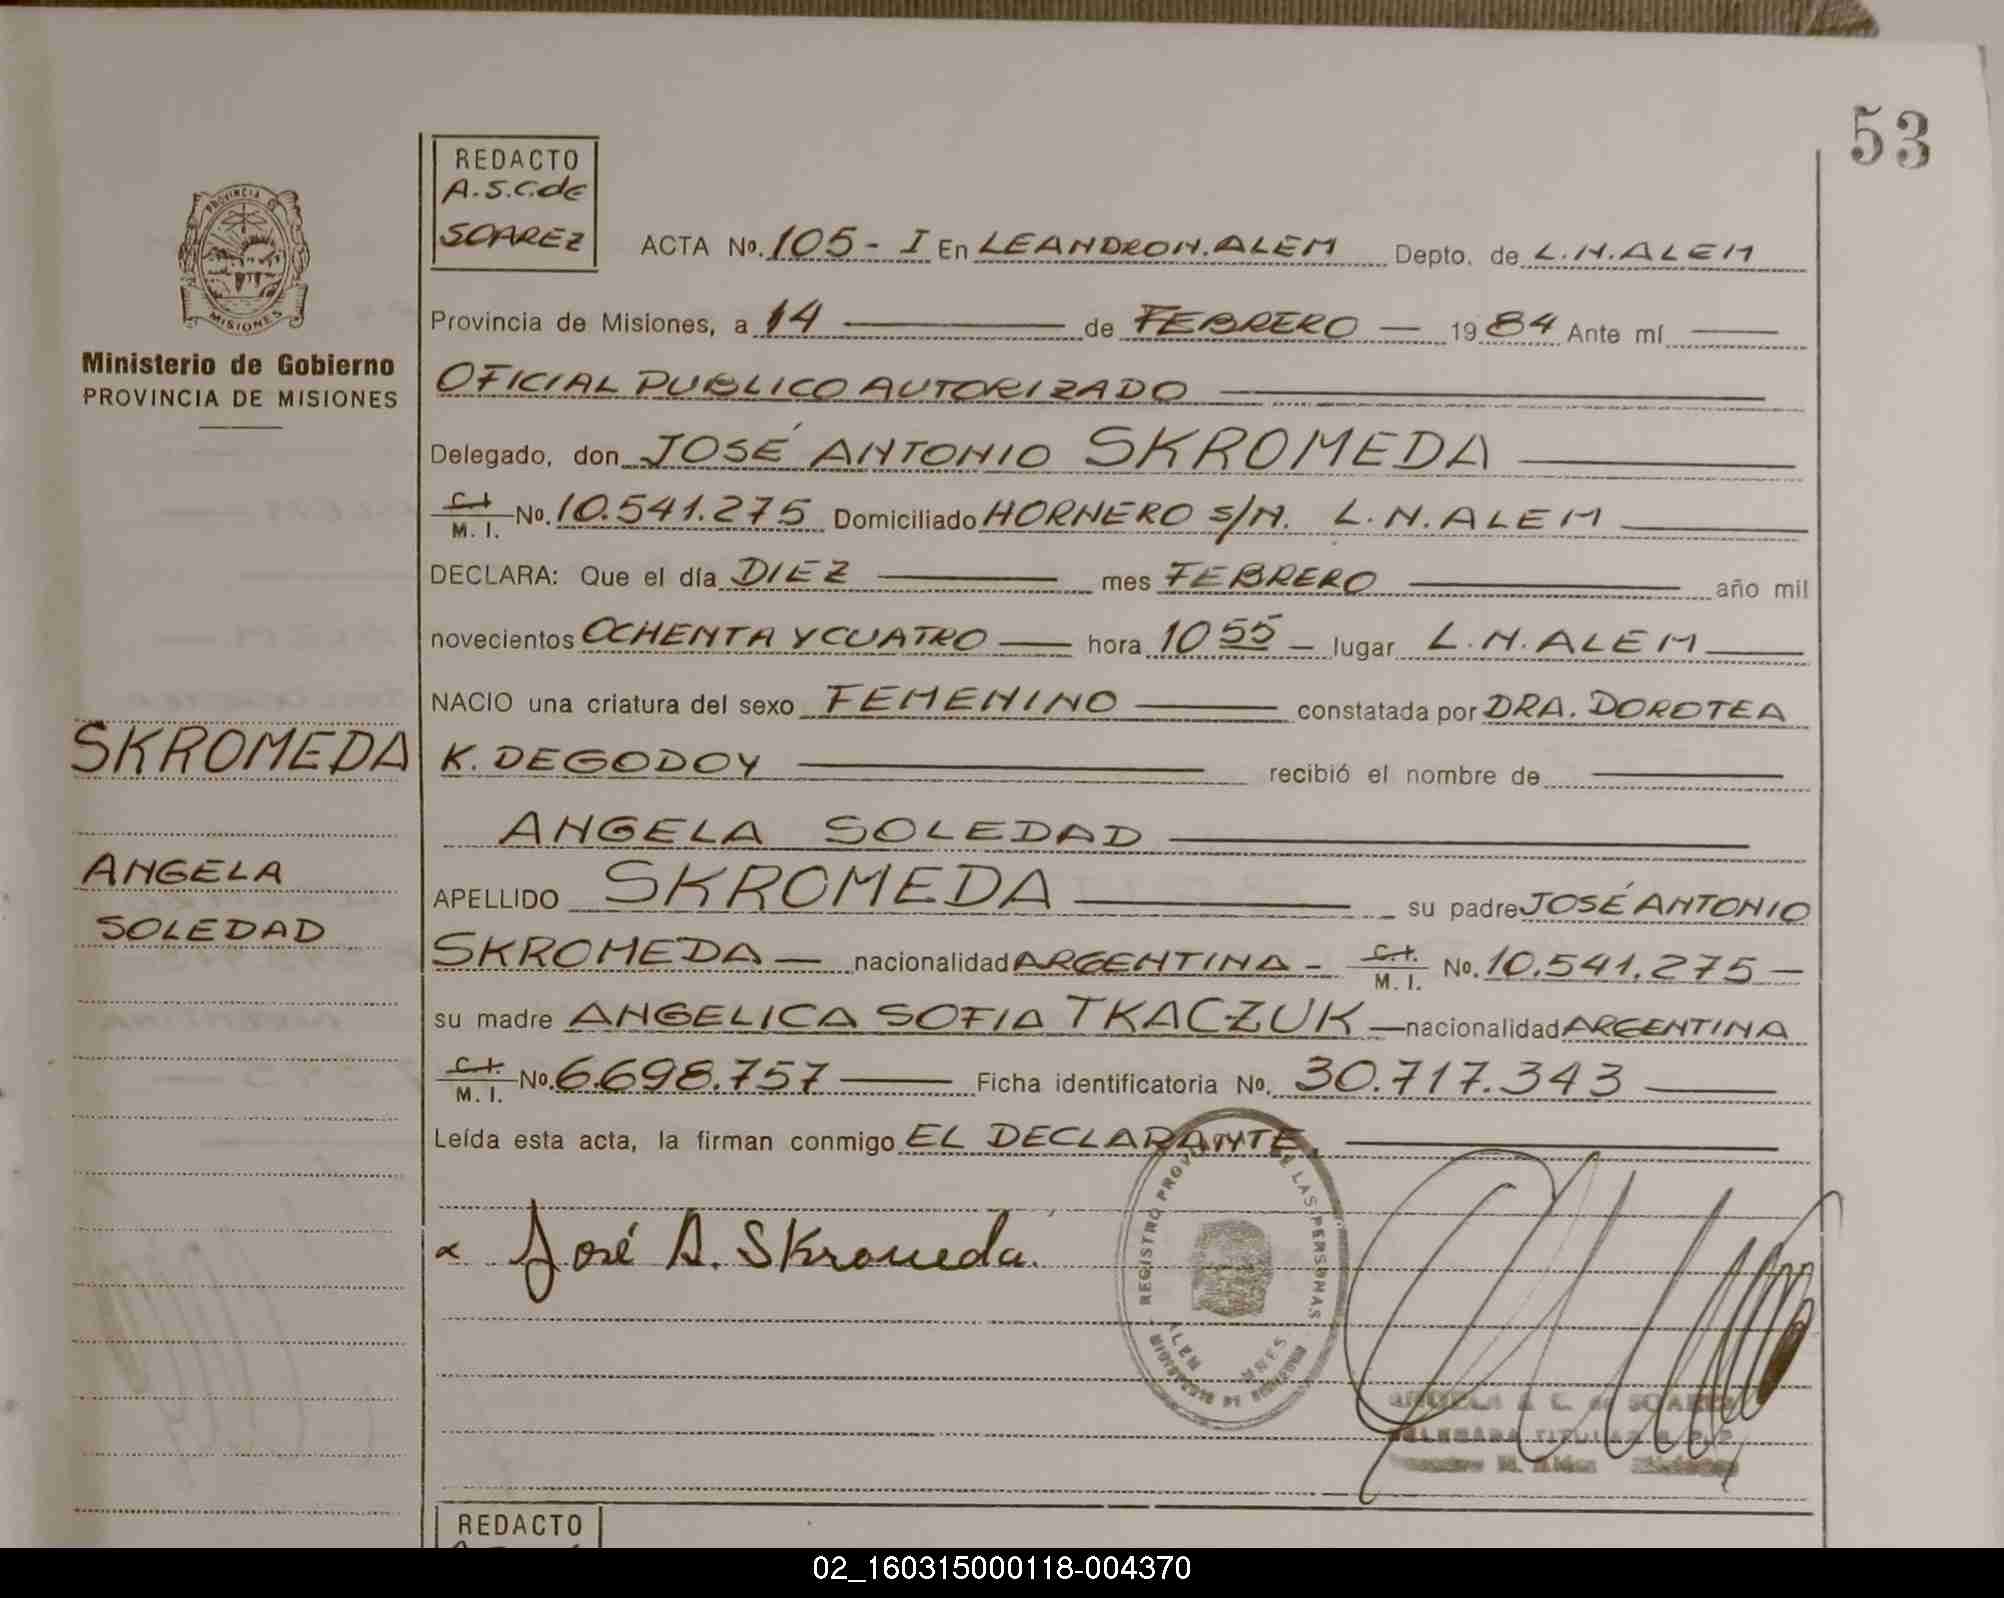 53
REDACTO
A.S.C.de
SOAREZ
ACTA No. 105 - I En LEANDRO N. ALEM Depto. de L.N.ALEM
PROVINCIA DE
MISIONES
Provincia de Misiones, a 14 de FEBRERO 1984 Ante mí
Ministerio de Gobierno
PROVINCIA DE MISIONES
OFICIAL PUBLICO AUTORIZADO
Delegado, don JOSÉ ANTONIO SKROMEDA
C.I. M. I. No. 10.541.275 Domiciliado HORNERO S/N. L.N.ALEM
DECLARA: Que el día DIEZ mes FEBRERO año mil
novecientos OCHENTA Y CUATRO hora 10 55 lugar L.N.ALEM
NACIO una criatura del sexo FEMENINO constatada por DRA. DOROTEA
SKROMEDA
K. DEGODOY recibió el nombre de
ANGELA SOLEDAD
ANGELA
SOLEDAD
APELLIDO SKROMEDA su padre JOSÉ ANTONIO
SKROMEDA nacionalidad ARGENTINA - C.I. M. I. No. 10.541.275
su madre ANGELICA SOFIA TKACZUK nacionalidad ARGENTINA
C.I. M. I. No. 6.698.757 Ficha identificatoria No. 30.717.343
Leída esta acta, la firman conmigo EL DECLARANTE.
José A. Skromeda.
REGISTRO PROVINCIAL DE LAS PERSONAS
ALEM
MNES
ANGELA S. C. de SOAREZ
DELEGADA TITULAR R. P. P.
Leandro N. Alem Misiones
REDACTO
02_160315000118-004370